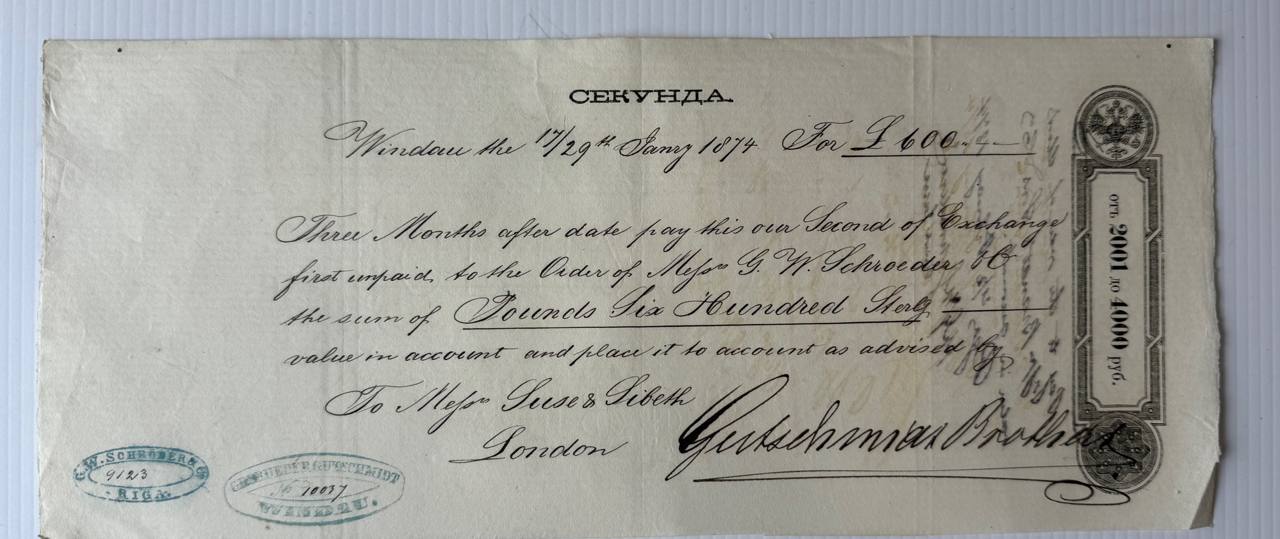 СЕКУНДА.
Windau the 17/29th Janry 1874 For £ 600.-.-
Three Months after date pay this our Second of Exchange
first unpaid, to the Order of Messrs G. W. Schroeder & C
the sum of Pounds Six Hundred Sterlg
value in account and place it to account as advised by
To Messrs Suse & Sibeth
London
Gutschmidt Brothers
отъ 2001 до 4000 руб.
G.W. SCHRÖDER & Co
9123
RIGA.
GEBRUEDER GUTSCHMIDT
No 10037
WINDAU.